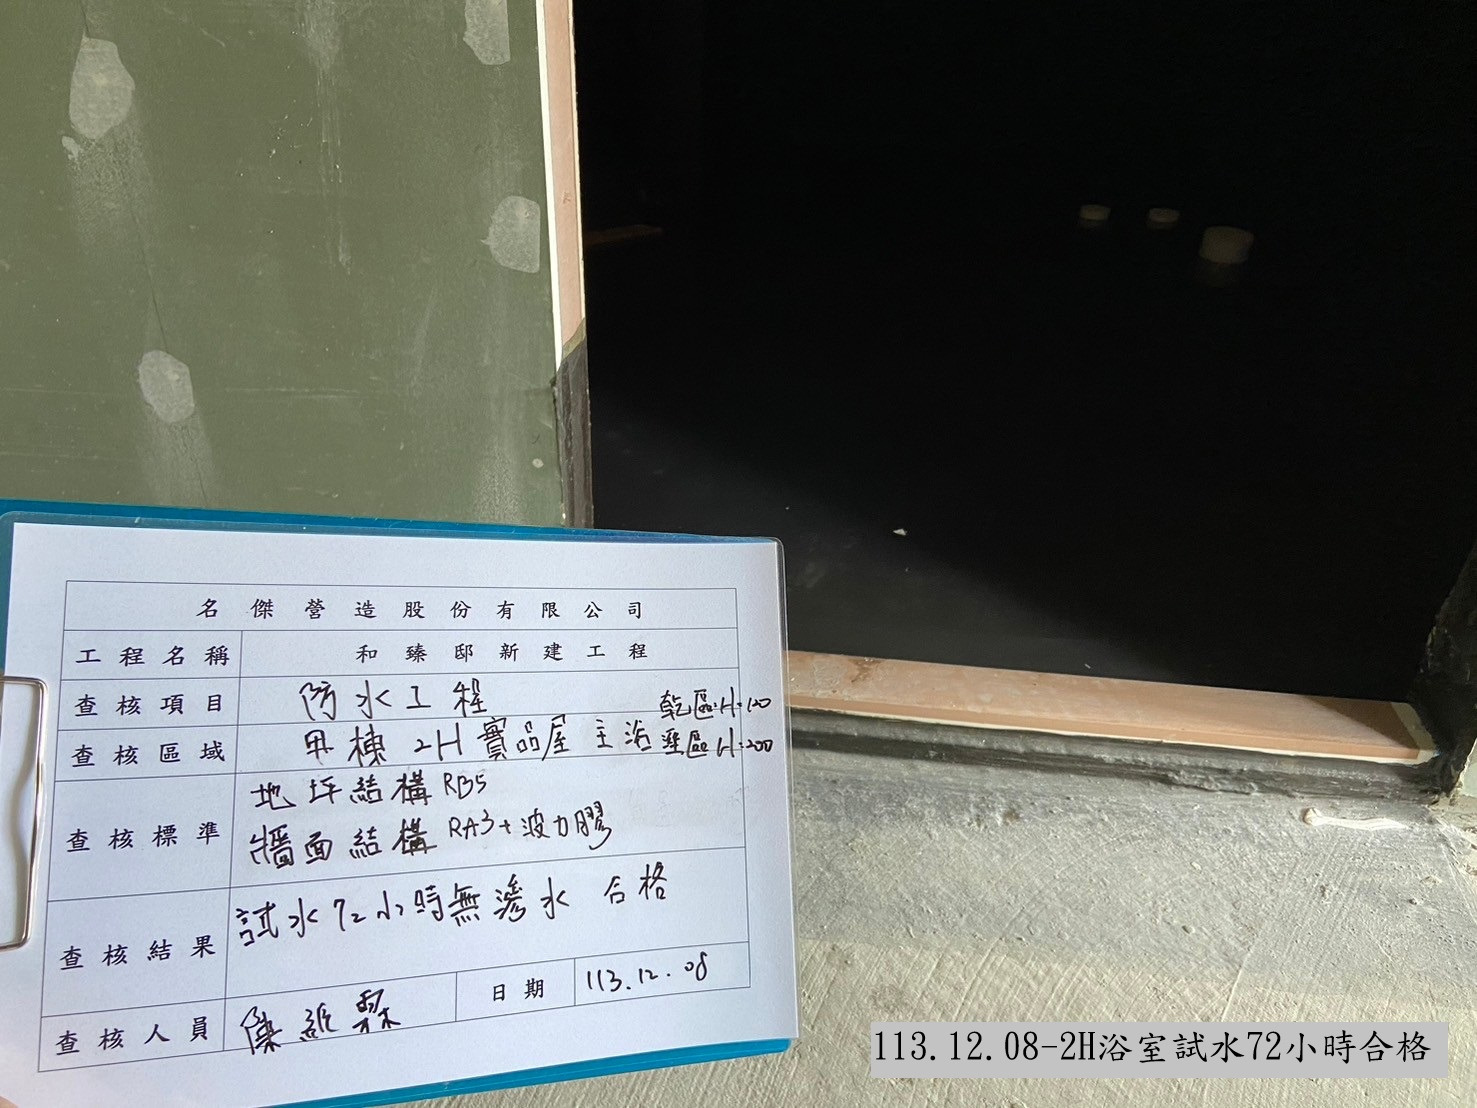 名傑營造股份有限公司
工程名稱 和臻邸新建工程
查核項目 防水工程
乾區:H:120
查核區域 甲棟 2H 實品屋 主浴 溼區H:200
查核標準 地坪結構 RB5
牆面結構 RA3+波力膠
查核結果 試水72小時無滲水 合格
查核人員 日期 113.12.08
113.12.08-2H浴室試水72小時合格